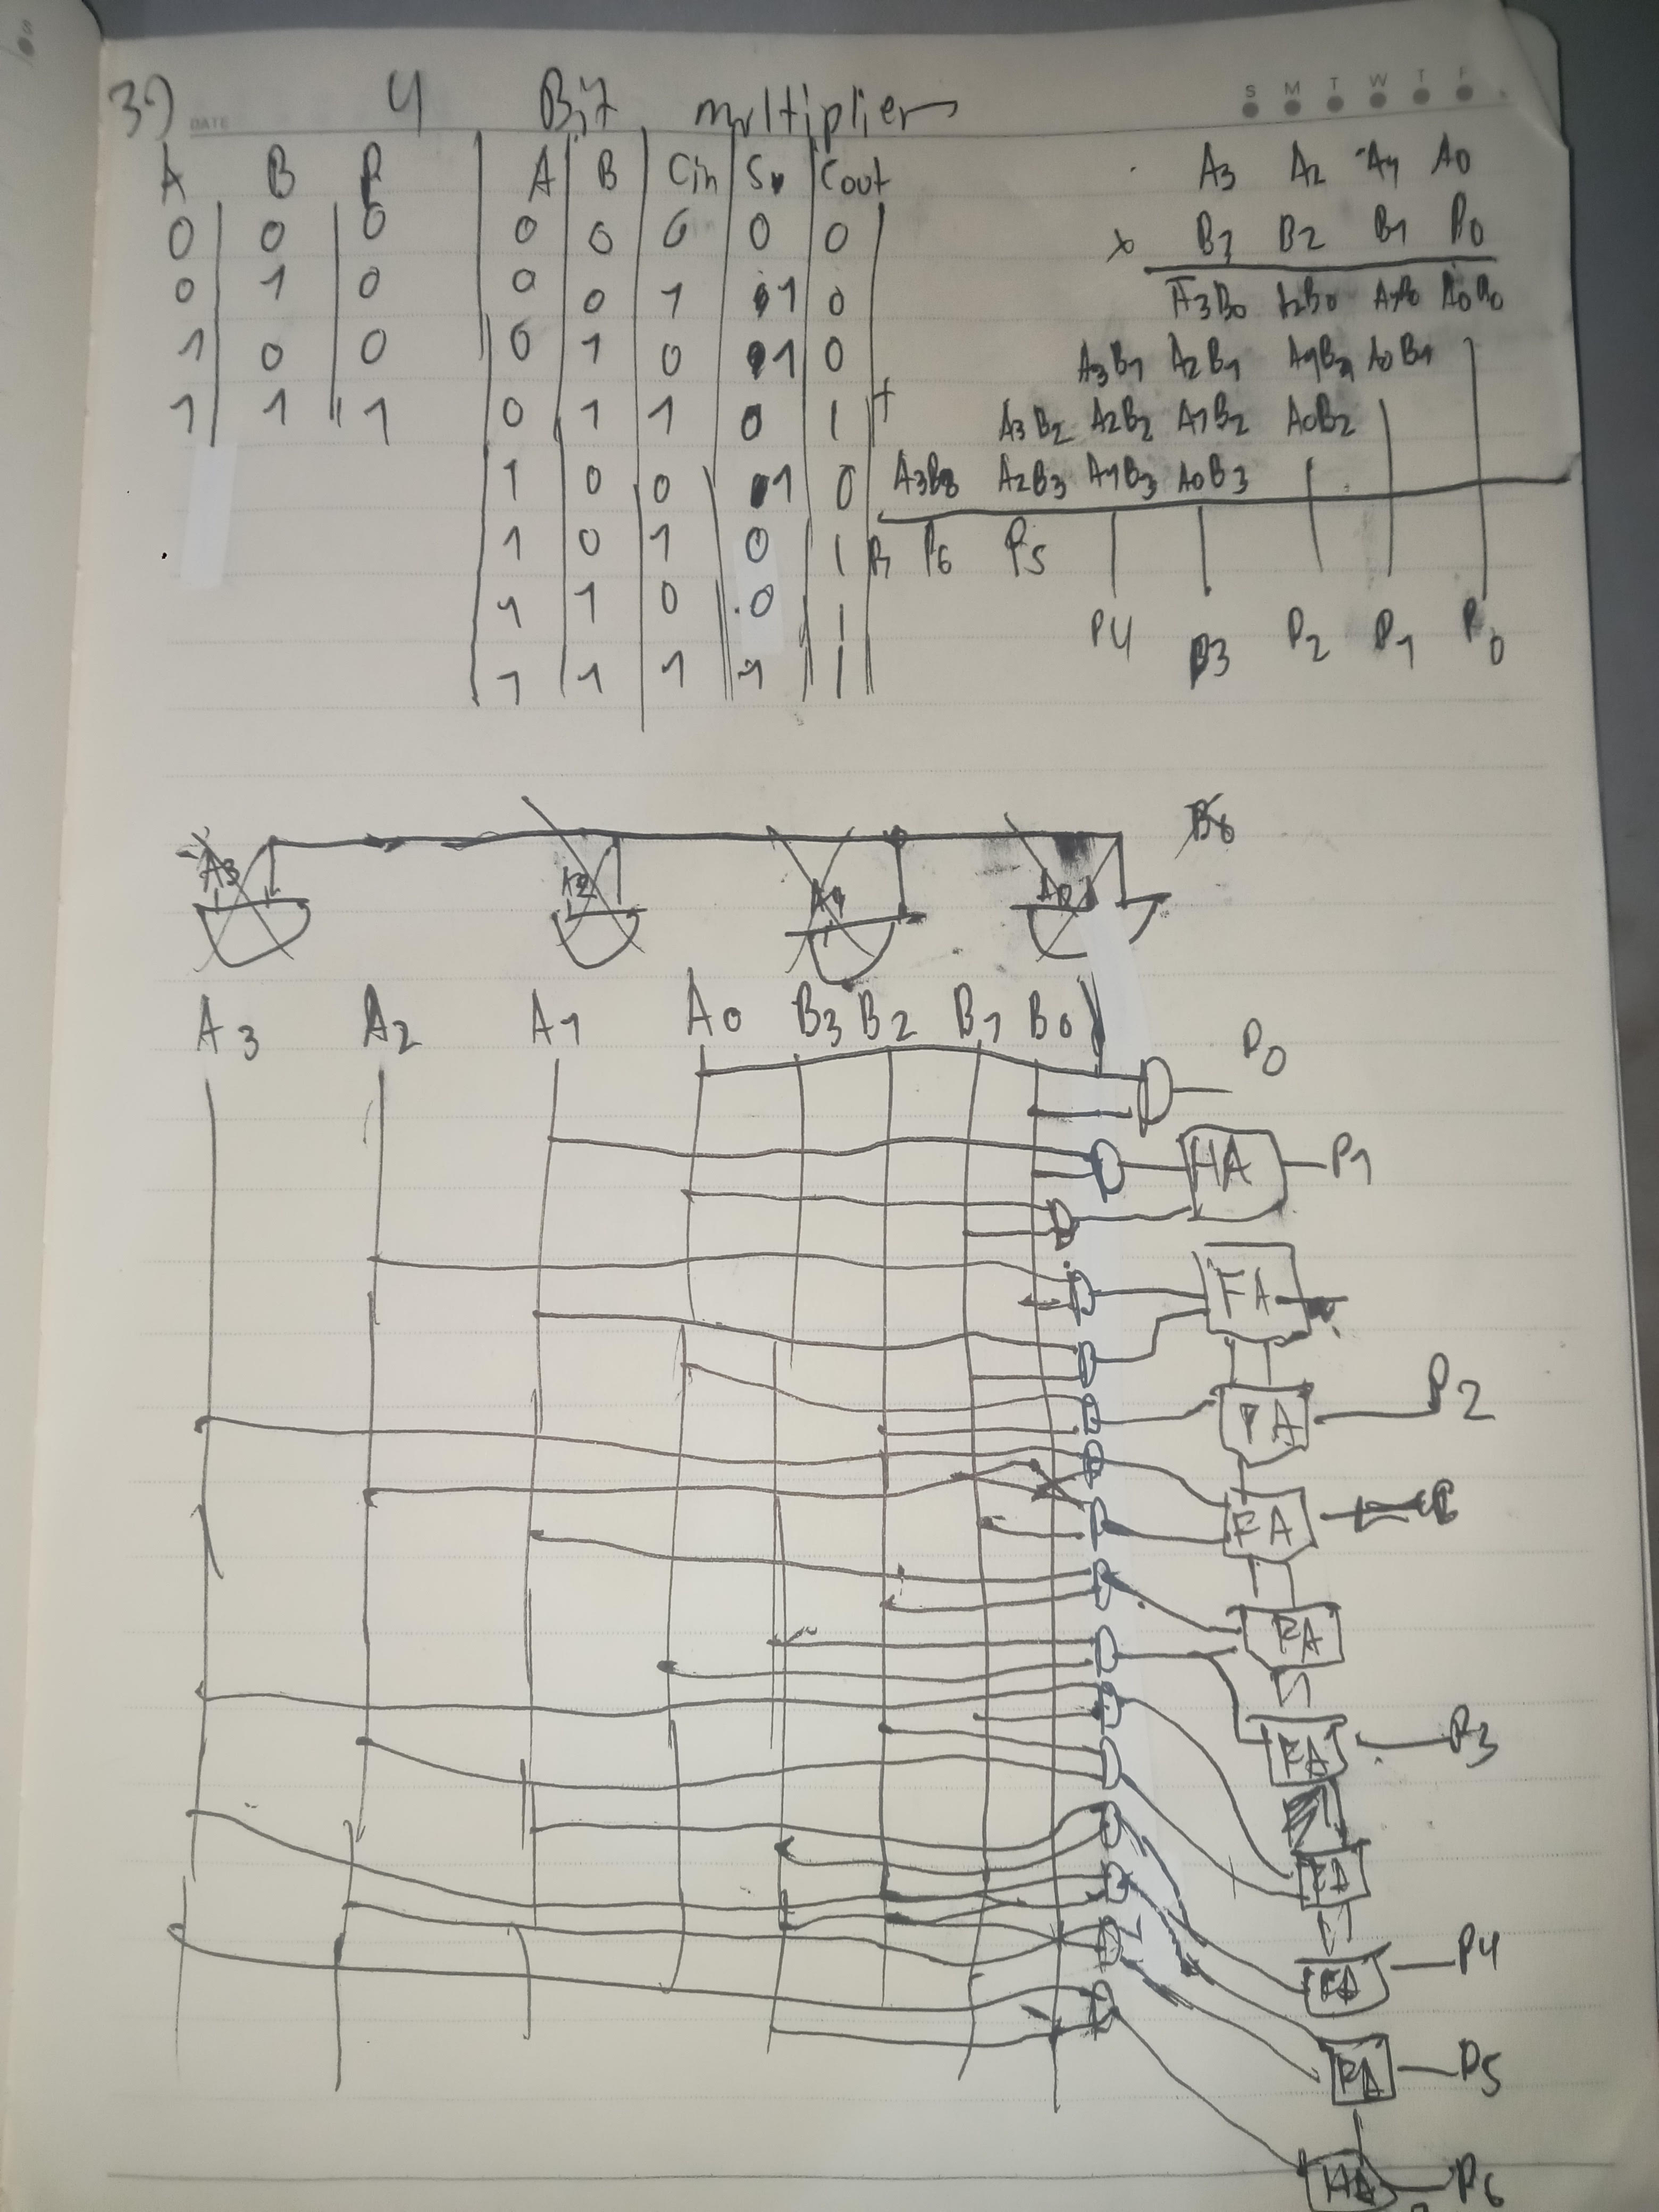 39) 4 Bit multiplier
DATE
S M T W T F
A B P
0 0 0
0 1 0
1 0 0
1 1 1
A B Cin S Cout
0 0 0 0 0
0 0 1 1 0
0 1 0 1 0
0 1 1 0 1
1 0 0 1 0
1 0 1 0 1
1 1 0 0 1
1 1 1 1 1
A3 A2 A1 A0
x B3 B2 B1 B0
A3B0 A2B0 A1B0 A0B0
A3B1 A2B1 A1B1 A0B1
+ A3B2 A2B2 A1B2 A0B2
A3B3 A2B3 A1B3 A0B3
P7 P6 P5
P4 P3 P2 P1 P0
A3 A2 A1 A0 B0
A3 A2 A1 A0 B3 B2 B1 B0
P0
HA P1
FA
FA P2
FA
FA
FA P3
FA
FA P4
FA P5
HA P6